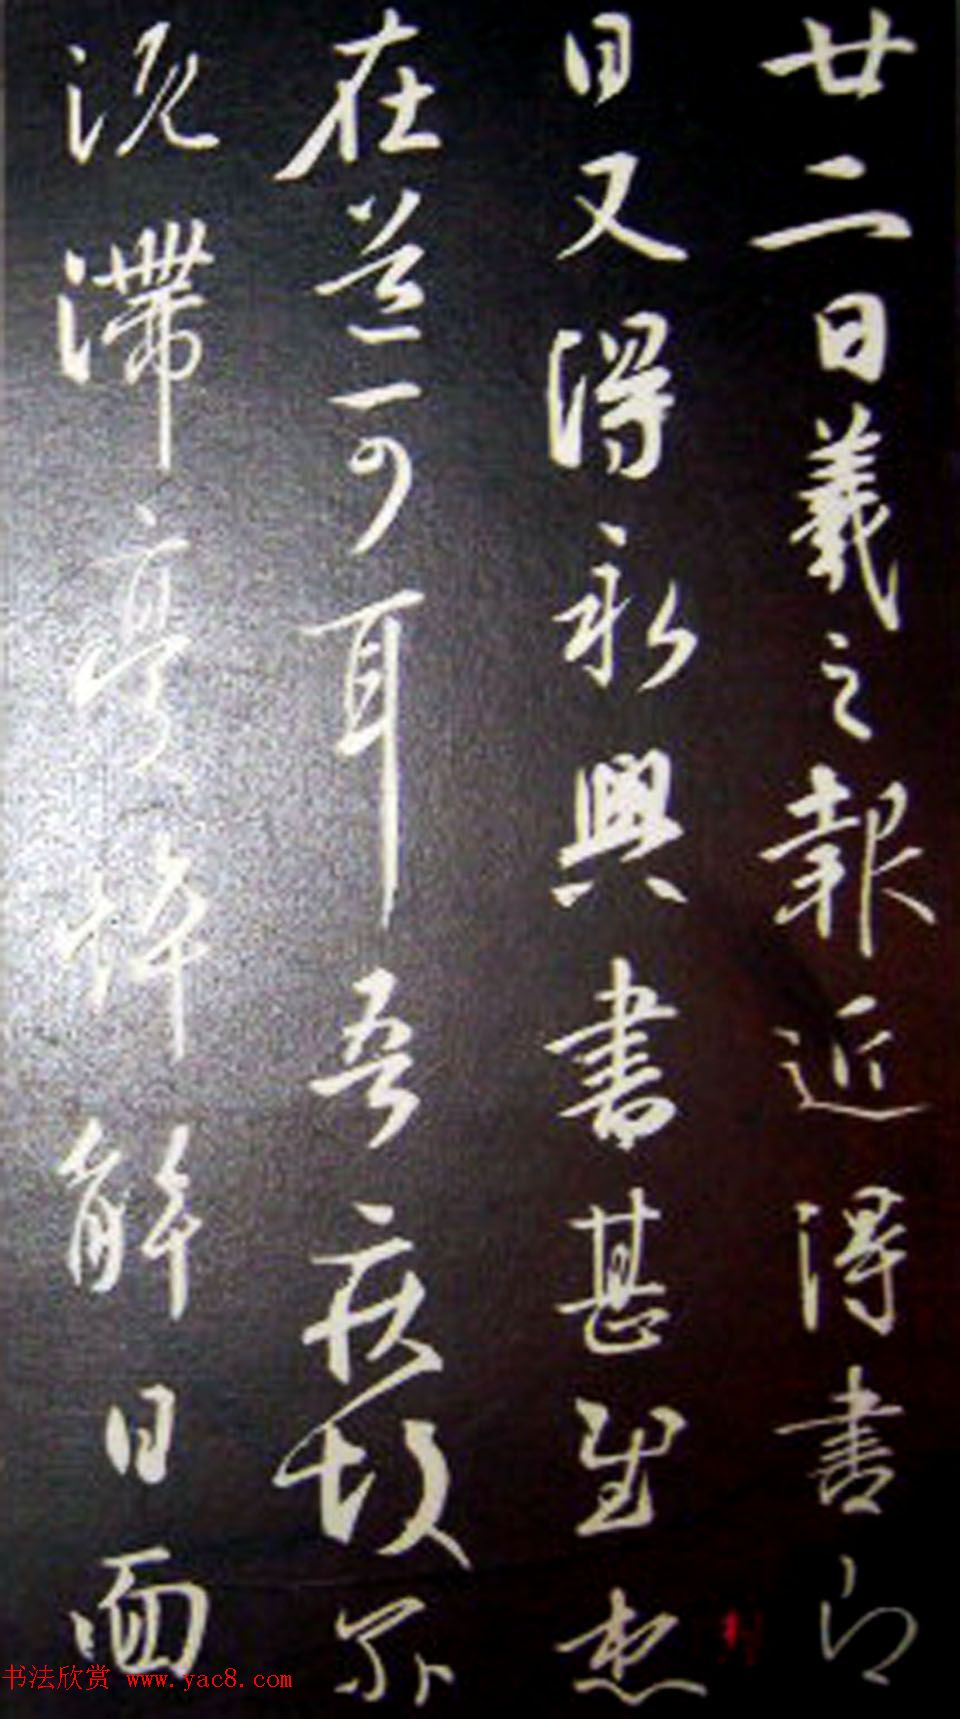 廿二日羲之報近得書即
日又得永興書甚慰想
在道可耳吾疾故爾
沉滯憂悴解日面
书法欣赏 www.yac8.com